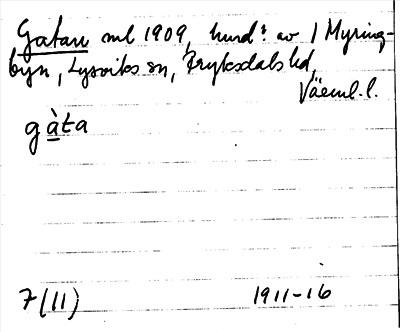 Gatan ml 1909, hmd: av 1 Myrings-
byn, Lysviks sn, Fryksdals hd,
Värml. l.
gàta
7(11) 1911-16